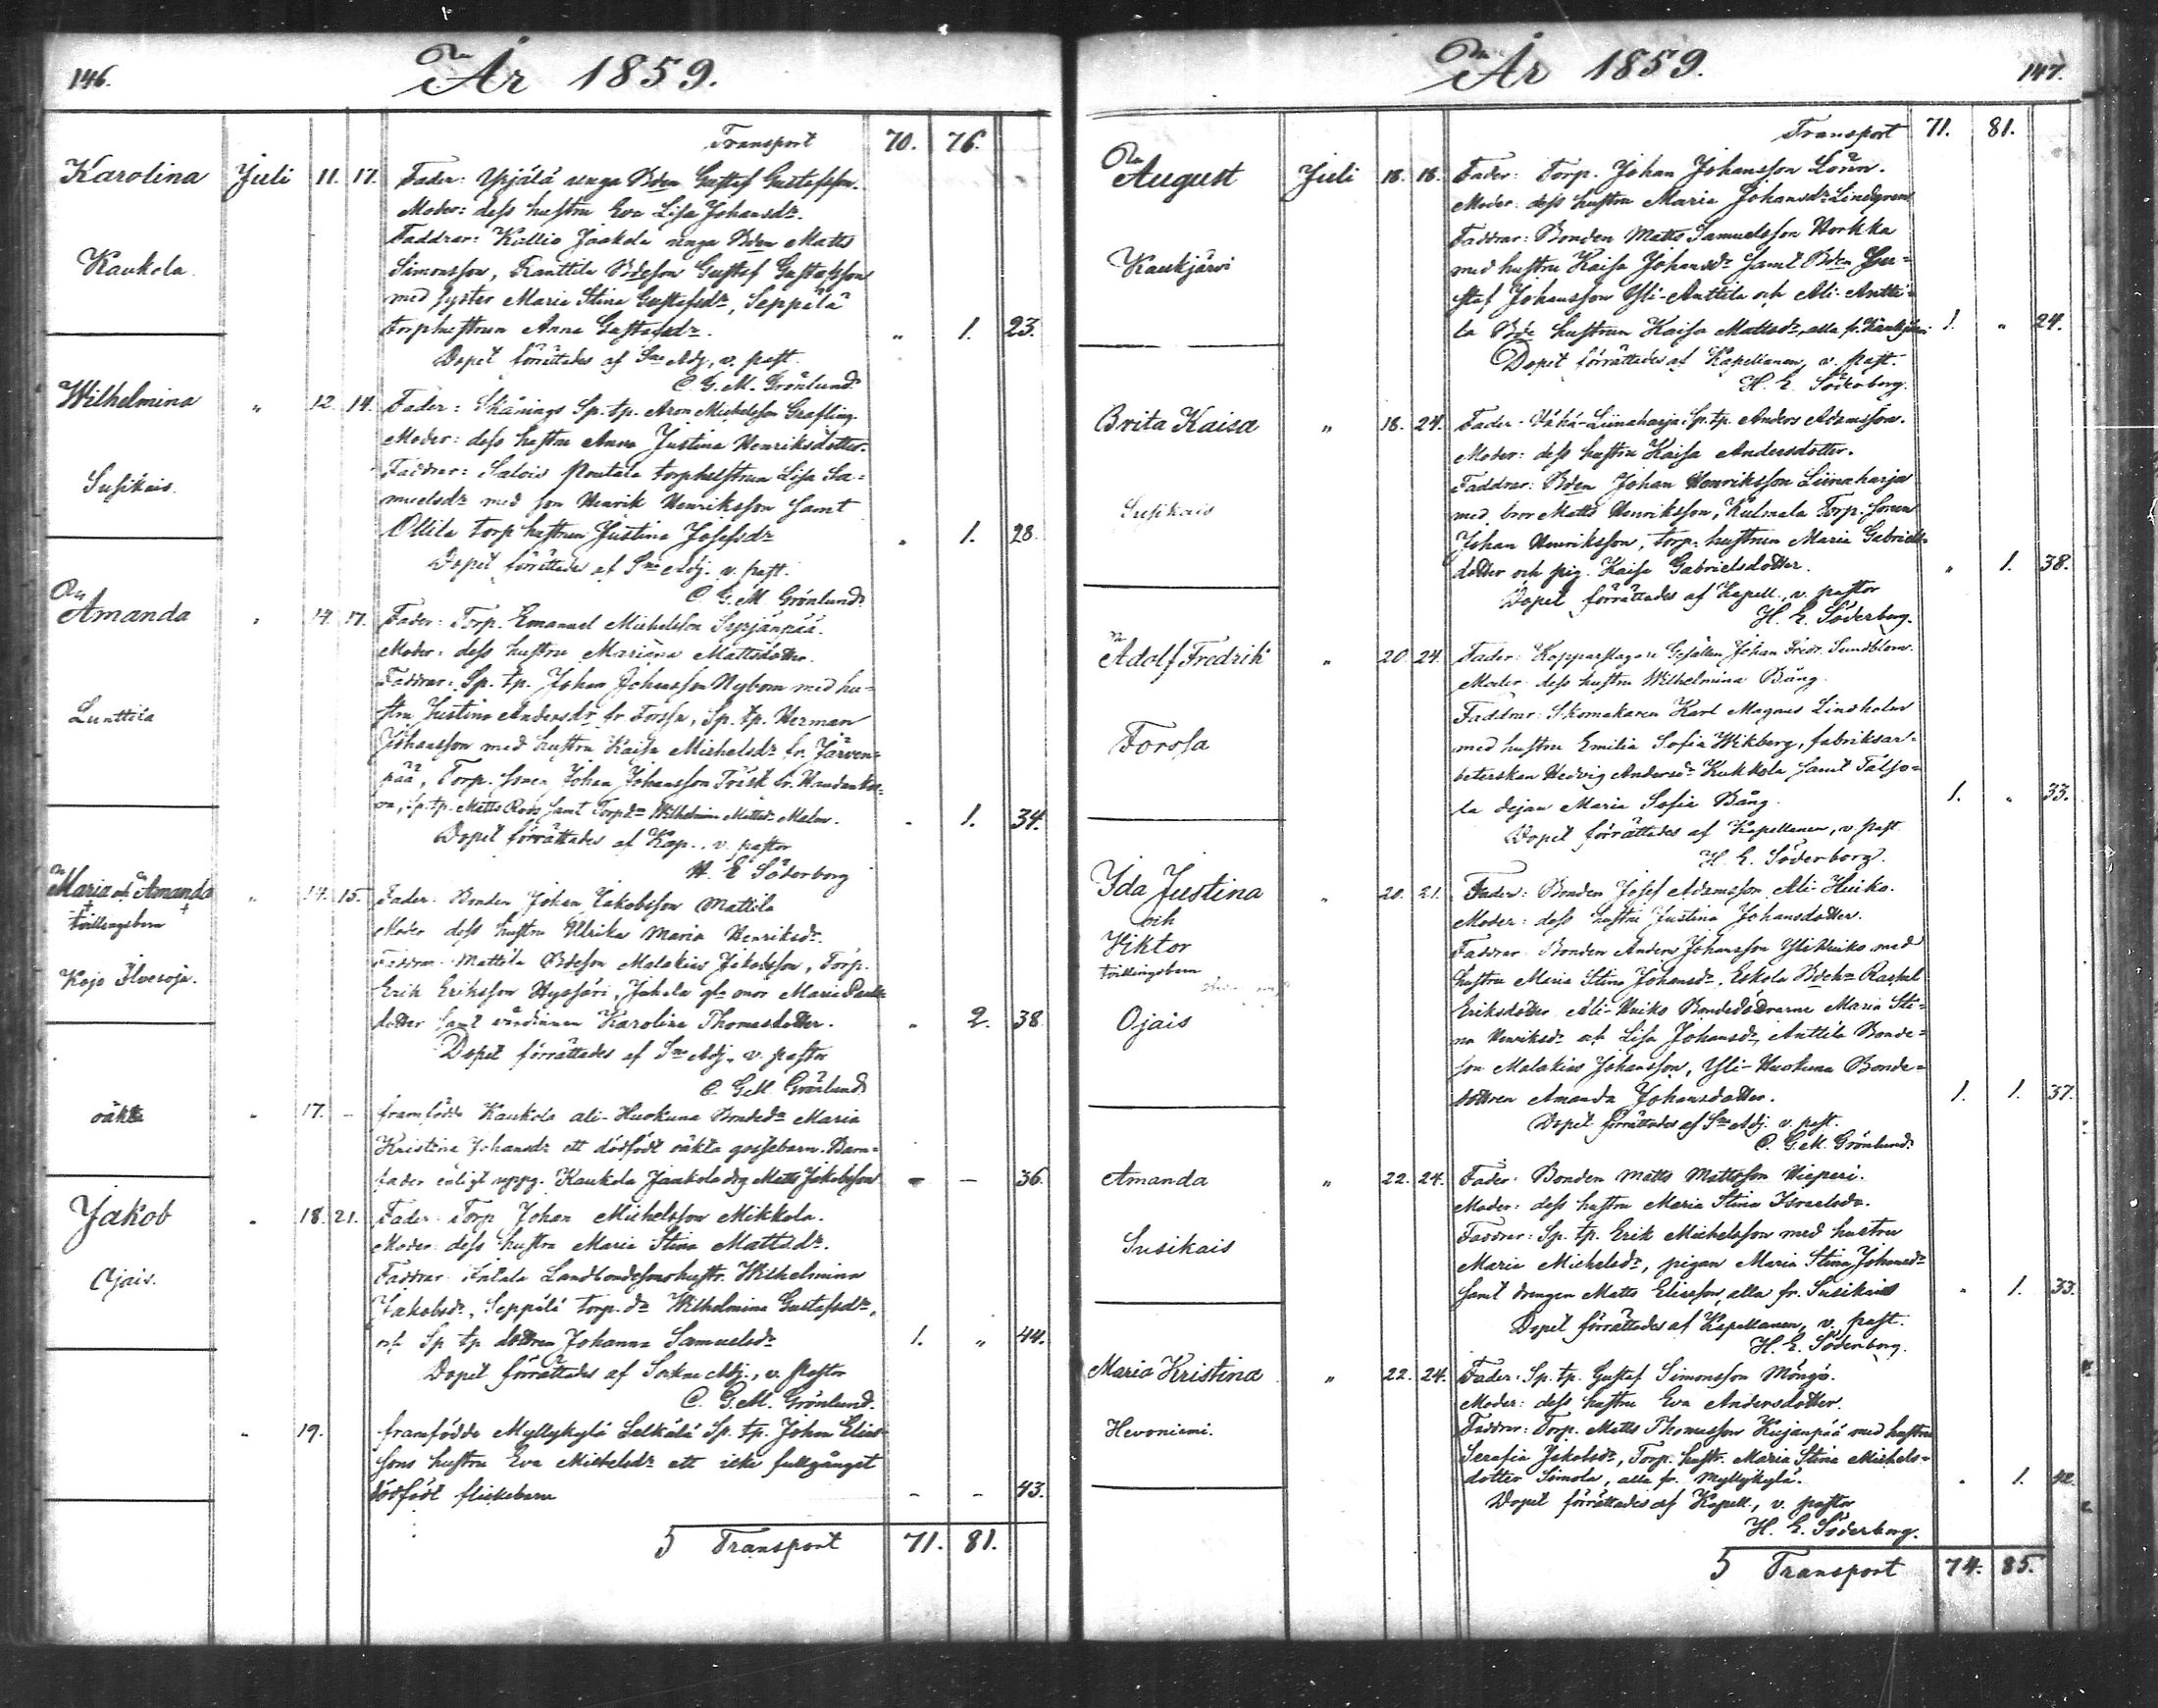 146.
År 1859.
Transport 70. 76.
Karolina Juli 11. 17. Fader: Ypäjä unga Bden Gustaf Gustafsson.
Moder: dess hustru Eva Lisa Johansdr.
Faddrar: Kallio Jaakola unga Bden Matts
Kaukola
Simonsson, Kanttila Bdeson Gustaf Gustafsson
med syster Maria Stina Gustafsdr, Seppälä
torphustrun Anna Gustafsdr. „ 1. 23.
Dopet förättades af Sne Adj. v. past.
C. G. M. Grönlund.
Wilhelmina „ 12. 14. Fader: Skänings Sp. tp. Aron Michelsson Grafling.
Moder: dess hustru Anna Justina Henriksdotter.
Susikais.
Faddrar: Salois Routala torphustrun Lisa Sa=
muelsdr med son Henrik Henriksson samt
Ollila torp hustrun Justina Josefsdr „ 1. 28.
Dopet förättades af Sne Adj. v. past.
C. G. M. Grönlund.
Amanda „ 14. 17. Fader: Torp. Emanuel Michelsson Syrjänpää.
Moder: dess hustru Mariana Mattsdotter.
Faddrar: Sp. tp. Johan Johansson Nybom med hu=
Lunttila
stru Justina Andersdr fr. Forssa, Sp. tp. Herman
Johansson med hustru Kaisa Michelsdr fr. Järven=
pää, Torp. sonen Johan Johansson
Sp. tp. Matts Roos samt Torp.dr Wilhelmina Mattsdr Malm. „ 1. 34.
Dopet förrättades af Kap., v. pastor
H. E. Söderborg
Maria och Amanda „ 14. 15. Fader: Bonden Johan Jakobsson Mattila
tvillingsbarn
Moder dess hustru Ulrika Maria Henriksdr.
Faddrar: Mattila Bdeson Malakias Jakobsson, Torp.
Kojo Ilvesoja.
Erik Eriksson Hyssäri, Maria Pauls
dotter samt värdinnan Karolina Thomasdotter. „ 2. 38
Dopet förrättades af Sne Adj. v. pastor
C. G. M. Grönlund
oäkta „ 17. – framfödde Kaukola ali-Huokuna Bondedr Maria
Kristina Johansdr ett dödfödt oäkta gossebarn. Barn=
fader enligt uppg. Kaukola Jaakola drg Matts Jakobsson – – 36.
Jakob „ 18. 21. Fader: Torp Johan Michelsson Mikkola.
Moder: dess hustru Maria Stina Mattsdr.
Ojais.
Faddrar: Landbondesonshustr. Wilhelmina
Jakobsdr, Seppälä torp. dr Wilhelmina Gustafsdr,
och Sp tp dottren Johanna Samuelsdr 1. „ 44.
Dopet förrättades af Sockne Adj., v. Pastor
C. G. M. Grönlund.
„ 19. framfödde Myllykylä Selkälä Sp. tp. Johan Elias=
sons hustru Eva Michelsdr ett icke fullgånget
dödfödt flickebarn – – 43.
5 Transport 71. 81.
147.
År 1859.
Transport 71. 81.
August Juli 18. 18. Fader: Torp. Johan Johansson Lörn.
Moder: dess hustru Maria Johansdr Lindgren
Faddrar: Bonden Matts Samuelsson Horkka
Kaukjärvi
med hustru Kaisa Johansdr samt Bden Gu=
staf Johansson Yli-Anttila och Ali-Antti=
la Bde hustrun Kaisa Mattsdr, alla fr. Kaukjärvi 1. „ 24.
Dopet förrättades af Kapellanen, v. Past.
H. E. Söderborg.
Brita Kaisa „ 18. 24. Fader: Vähä-Liinaharja Sp. tp. Anders Adamsson.
Moder: dess hustru Kaisa Andersdotter.
Faddrar: Bden Johan Henriksson Liinaharja
Susikais
med bror Matts Henriksson, Kulmala Torp. sonen
Johan Henriksson, torp. hustrun Maria Gabriels=
dotter och pig. Kaisa Gabrielsdotter. „ 1. 38.
Dopet förrättades af Kapell., v. pastor
H. E. Söderborg.
Adolf Fredrik „ 20. 24. Fader: Kopparslagare Gesällen Johan Fredr. Sundblom.
Moder: dess hustru Wilhelmina Bång.
Faddrar: Skomakaren Karl Magnus Lindholm
Forssa
med hustru Emilia Sofia Wikberg, fabriksar=
beterskan Hedvig Andersdr Kukkola samt Talso=
la dejan Maria Sofia Bång. 1. „ 33.
Dopet förrättades af Kapellanen, v. past.
H. E. Söderborg.
Ida Justina „ 20. 21. Fader: Bonden Josef Adamsson Ali-Huiko.
och
Moder: dess hustru Justina Johansdotter.
Viktor
Faddrar: Bonden Anders Johansson Yli-Huiko med
tvillingsbarn
hustru Maria Stina Johansdr, Eskola Raskel
Eriksdotter Ali-Huiko Bondedöttrarne Maria Sti=
Ojais
na Henriksdr och Lisa Johansdr, Anttila Bonde=
son Malakias Johansson, Yli-Huokuna Bonde=
dottren Amanda Johansdotter. 1. 1. 37.
Dopet förrättades af Sne Adj. v. past.
C. G. M. Grönlund.
Amanda „ 22. 24. Fader: Bonden Matts Mattsson Hieperi.
Moder: dess hustru Maria Stina Israelsdr.
Susikais
Faddrar: Sp. tp. Erik Michelsson med hustru
Maria Michelsdr, pigan Maria Stina Johansdr
samt drengen Matts Eliasson, alla fr. Susikais „ 1. 33.
Dopet förrättades af Kapellanen, v. past.
H. E. Söderborg.
Maria Kristina „ 22. 24. Fader: Sp. tp. Gustaf Simonsson Möngö.
Moder: dess hustru Eva Andersdotter.
Hevoniemi.
Faddrar: Torp. Matts Thomasson Kujanpää med hustru
Serafia Jakobsdr, Torp. hustr. Maria Stina Michels=
dotter Simola, alla fr. Myllykylä. „ 1. 42.
Dopet förrättades af Kapell., v. pastor
H. E. Söderborg.
5 Transport 74. 85.